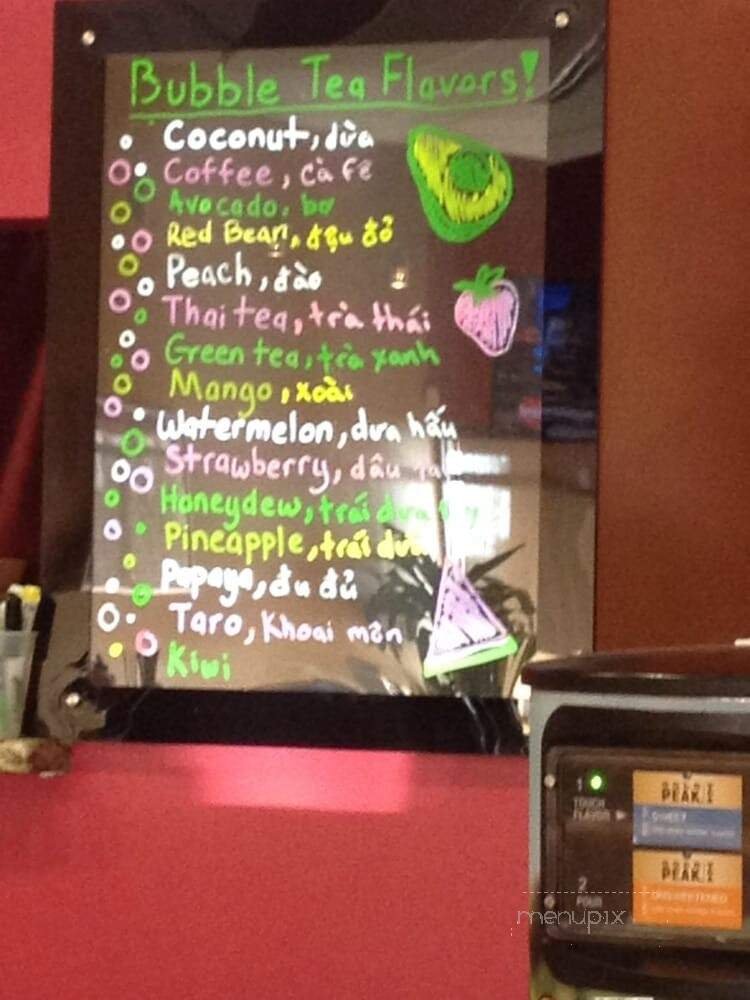 Bubble Tea Flavors!
Coconut, dừa
Coffee, cà fê
Avocado, bơ
Red Bean, đậu đỏ
Peach, đào
Thai tea, trà thái
Green tea, trà xanh
Mango, xoài
Watermelon, dưa hấu
Strawberry, dâu
Honeydew, trái dưa
Pineapple, trái
Papaya, đu đủ
Taro, Khoai môn
Kiwi
1
TOUCH
FLAVOR
PEAK
SWEET
2
POUR
PEAK
UNSWEETENED
menupix